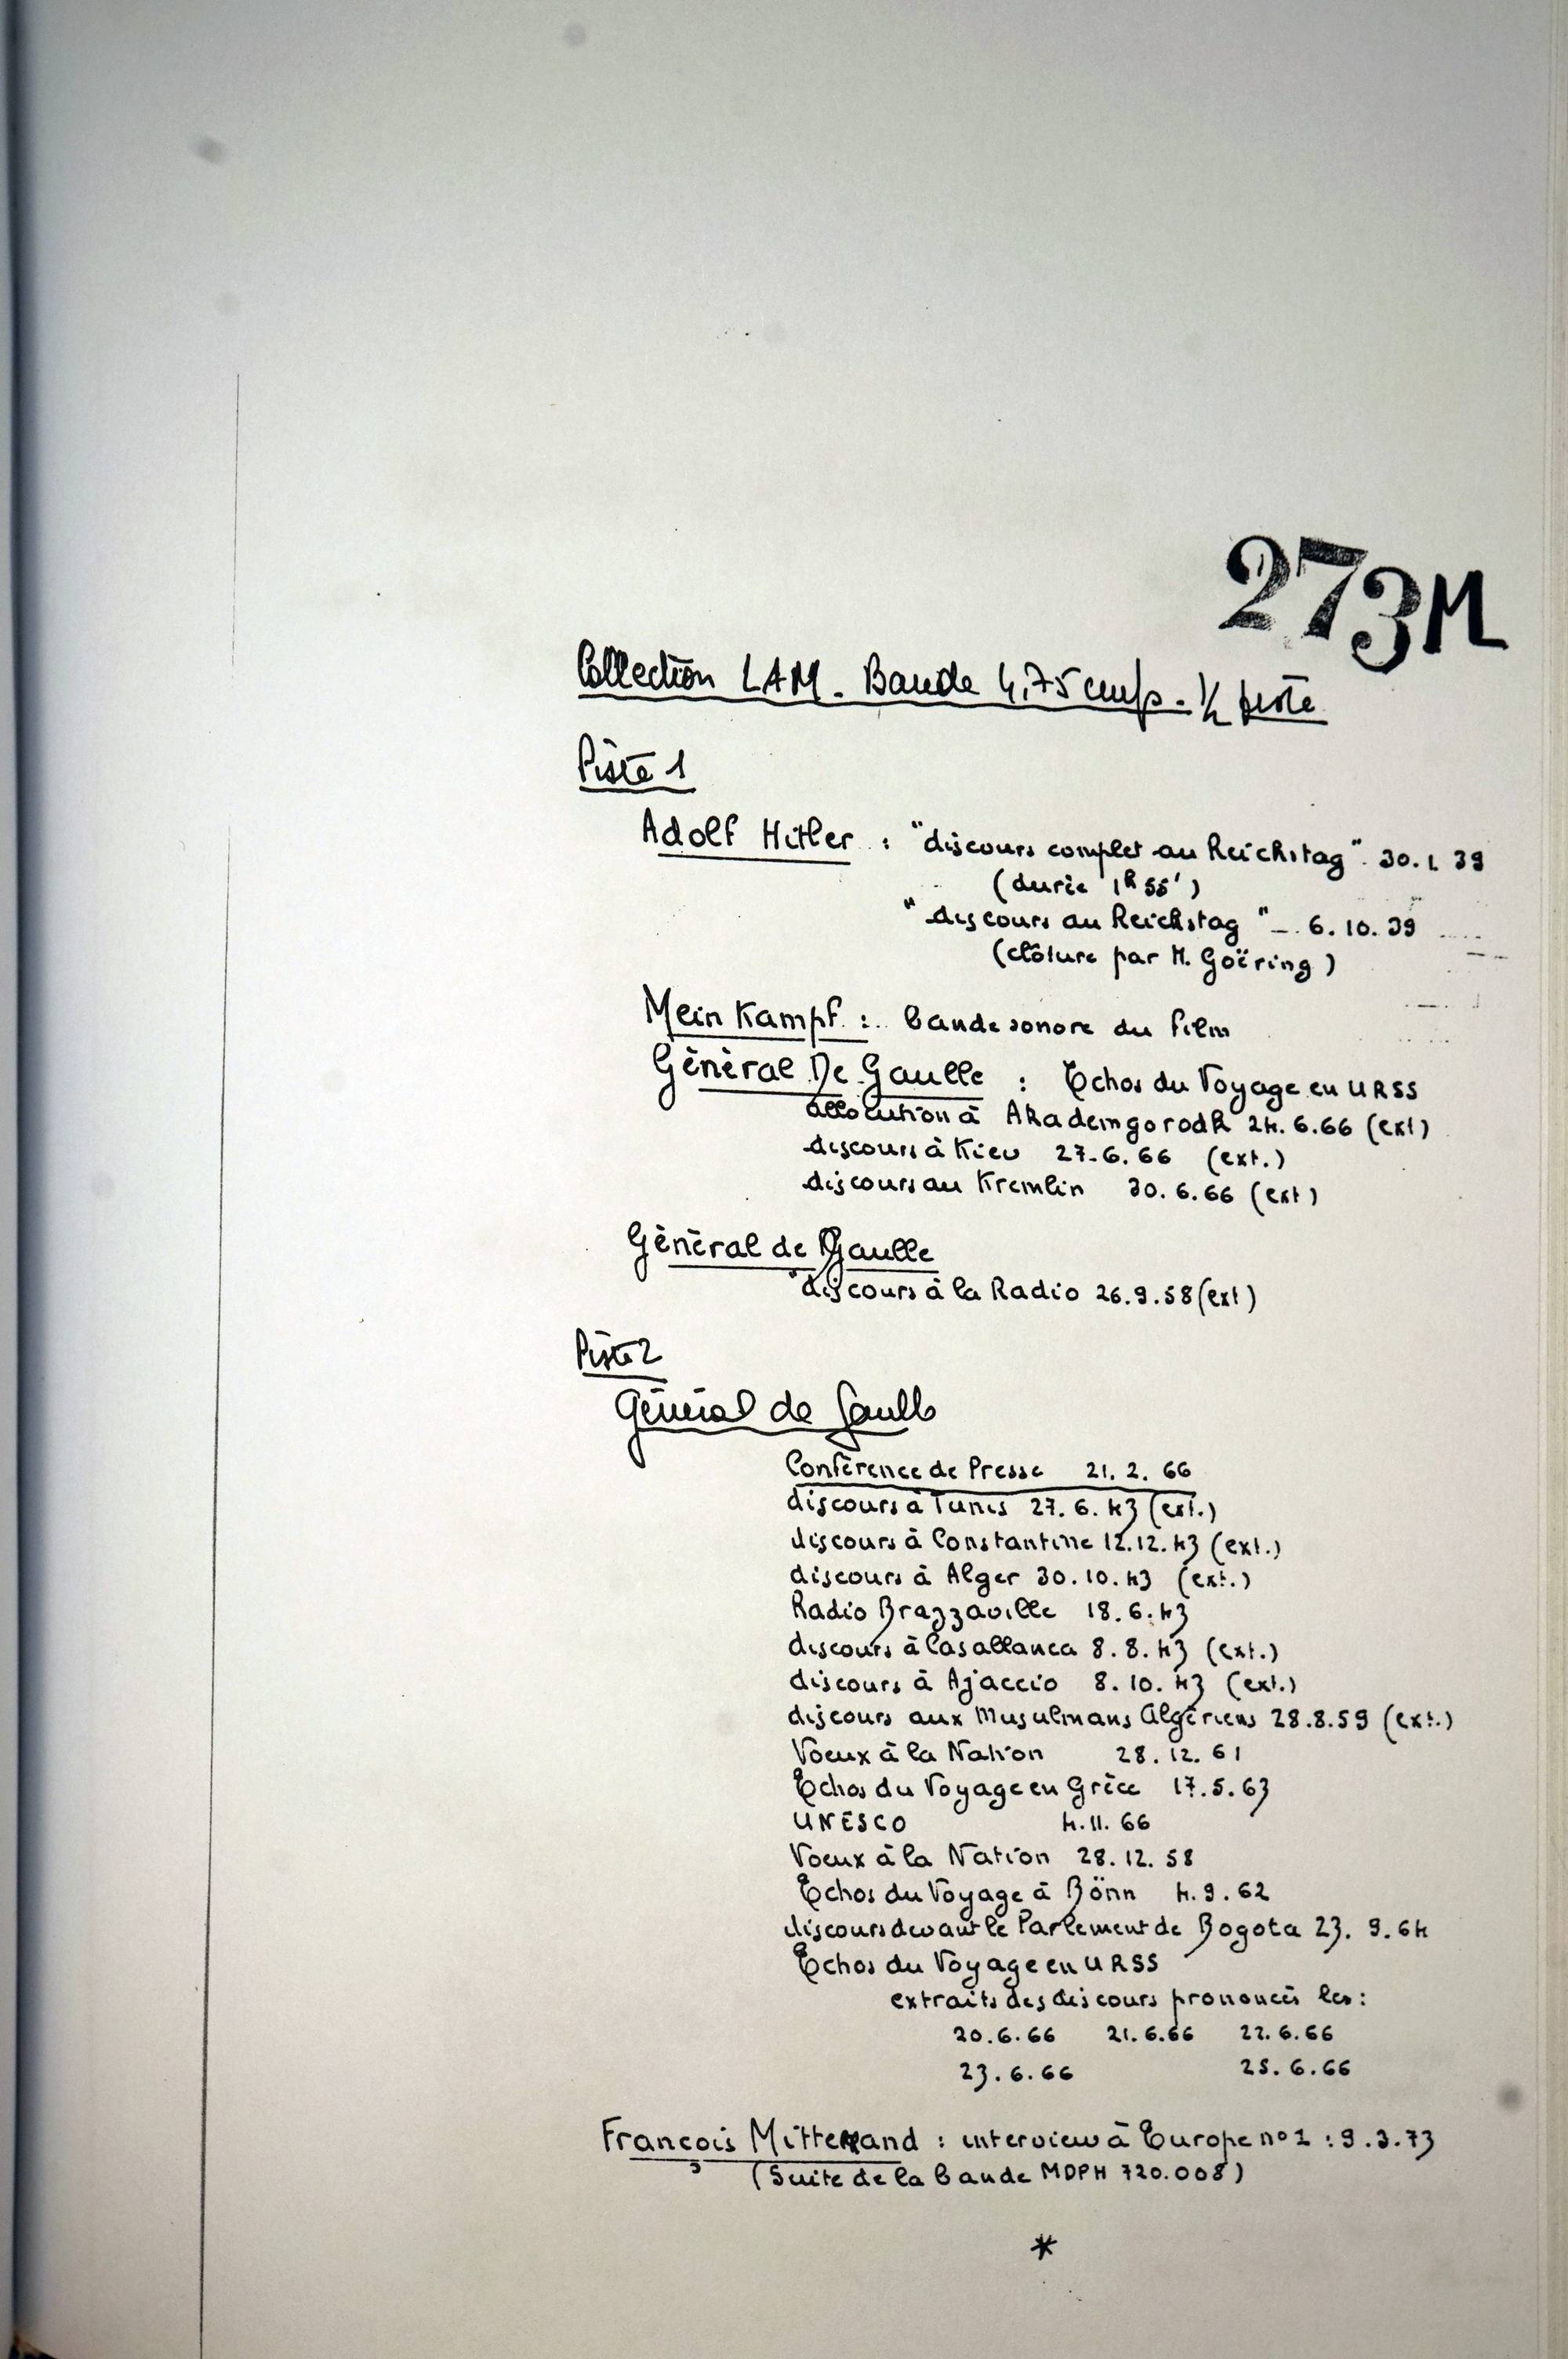 273M
Collection LAM - Bande 4,75 cm/s - 1/2 piste
Piste 1
Adolf Hitler : "discours complet au Reichstag" 30.1.39
(durée 1h55')
"discours au Reichstag" - 6.10.39
(clôture par H. Goëring)
Mein Kampf : bande sonore du film
Général De Gaulle : Echos du Voyage en URSS
allocution à Akademgorodk 24.6.66 (ext)
discours à Kiev 27.6.66 (ext.)
discours au Kremlin 30.6.66 (ext)
Général de Gaulle
discours à la Radio 26.9.58 (ext)
Piste 2
Général de Gaulle
Conférence de Presse 21.2.66
discours à Tunis 27.6.43 (ext.)
discours à Constantine 12.12.43 (ext.)
discours à Alger 30.10.43 (ext.)
Radio Brazzaville 18.6.43
discours à Casablanca 8.8.43 (ext.)
discours à Ajaccio 8.10.43 (ext.)
discours aux Musulmans Algériens 28.8.59 (ext.)
Voeux à la Nation 28.12.61
Echos du Voyage en Grèce 17.5.63
UNESCO 4.11.66
Voeux à la Nation 28.12.58
Echos du Voyage à Bönn 4.9.62
discours devant le Parlement de Bogota 23.9.64
Echos du Voyage en URSS
extraits des discours prononcés les :
20.6.66 21.6.66 22.6.66
23.6.66 25.6.66
François Mitterrand : interview à Europe n°1 : 9.3.73
(Suite de la bande MDPH 720.008)
*